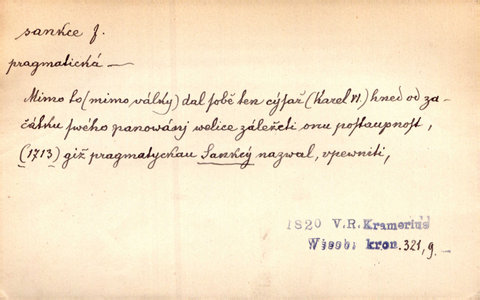 sankce f.
pragmatická —
Mimo to (mimo války) dal sobě ten cýsař (Karel VI.) hned od za-
čátku swého panowánj welice záležeti onu postaupnost,
(1713) giž pragmatyckau Sankcý nazwal, vpewniti,
1820 V.R. Kramerius
kron. 321, g. —